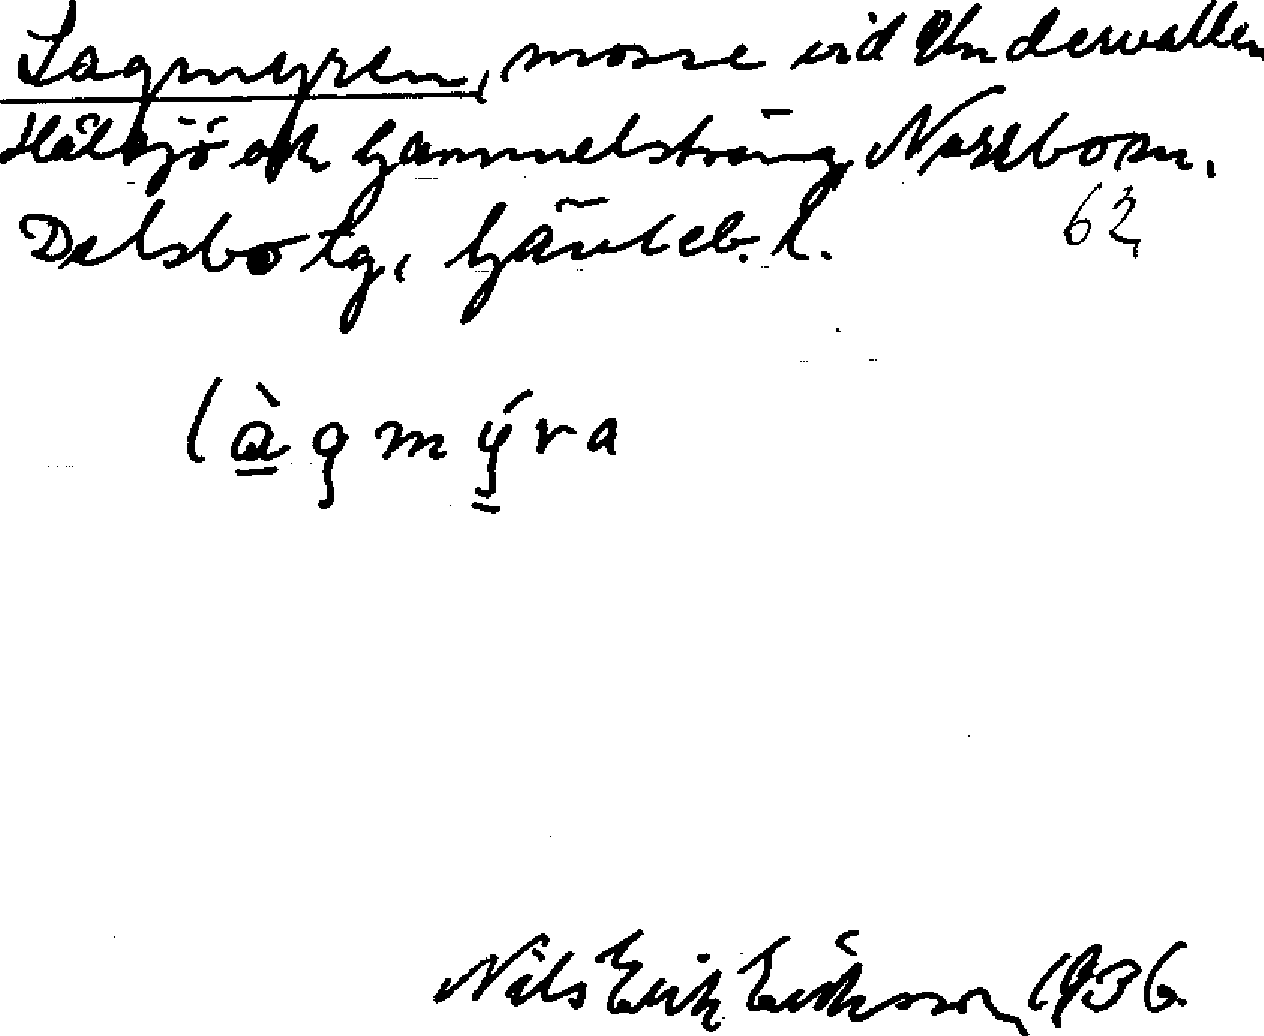 Lagmyren, mosse vid Undervallen
Hålsjö och Gammelsträng, Norrbo sn.
Delsbo tg, Gävleb. l. 62
làgmýra
Nils Erik Eriksson 1936.